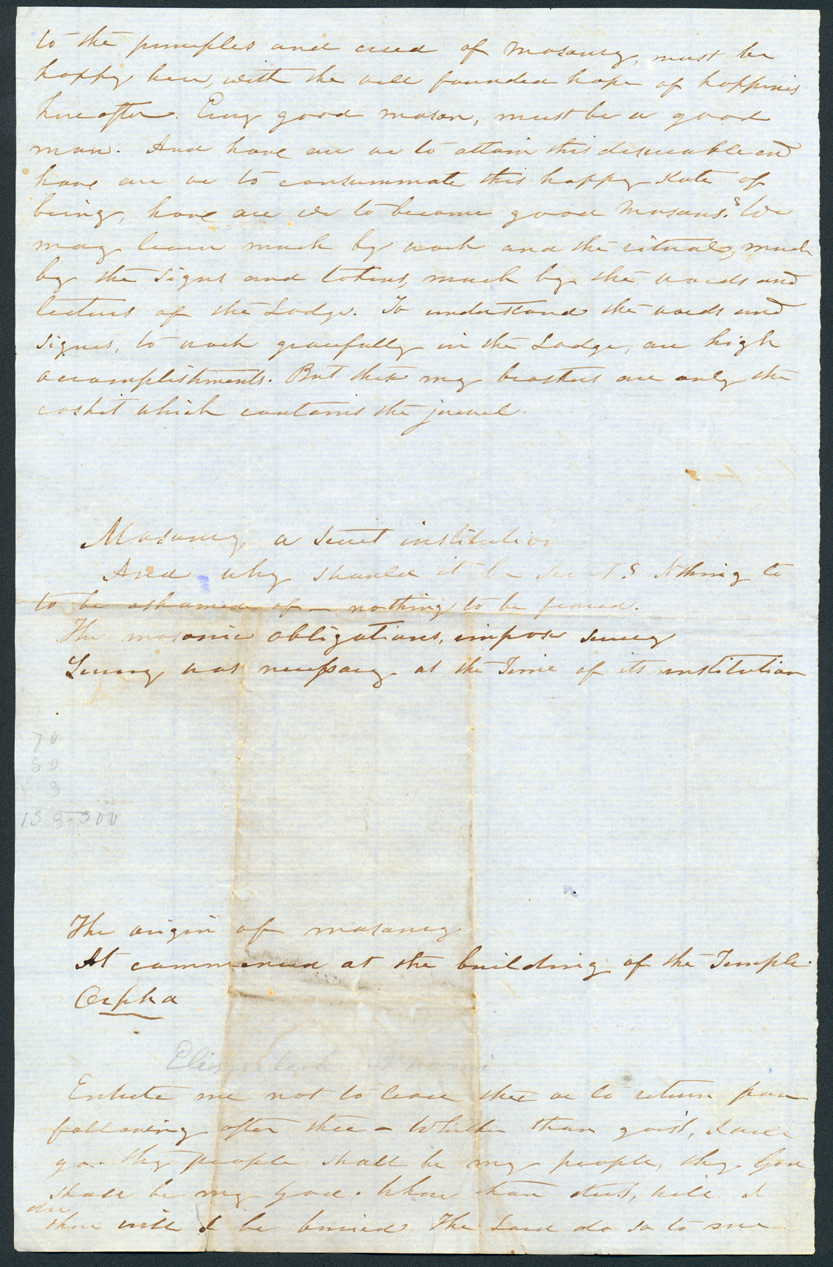 to the principles and creed of masonry, must be
happy here, with the well founded hope of happiness
hereafter. Every good mason, must be a good
man. And how are we to attain this desireable end
how are we to consummate this happy state of
being, how are we to become good Masons? We
may learn much by work and the rituals, much
by the signs and tokens, much by the words and
lectures of the Lodge. To understand the words and
signes, to work gracefully in the Lodge, are high
accomplishments. But these my brothers are only the
caskit which contains the jewel.
Masonry, a secret institution
And why should it be secret? Nthing to
to be ashamed of - nothing to be feared.
The masonic obligations, impose secrecy
Secrecy was necessary at the Time of its institution
70
80
3
153-300
The origin of masonry
It commenced at the building of the Temple.
Orpha
Elimelech Naomi
Entrete me not to leave thee or to return from
following after thee - Whither thou goest, I will
go. thy people shall be my people, thy God
shall be my God. Where thou diest, will I
die
there will I be buried. The Lord do so to me